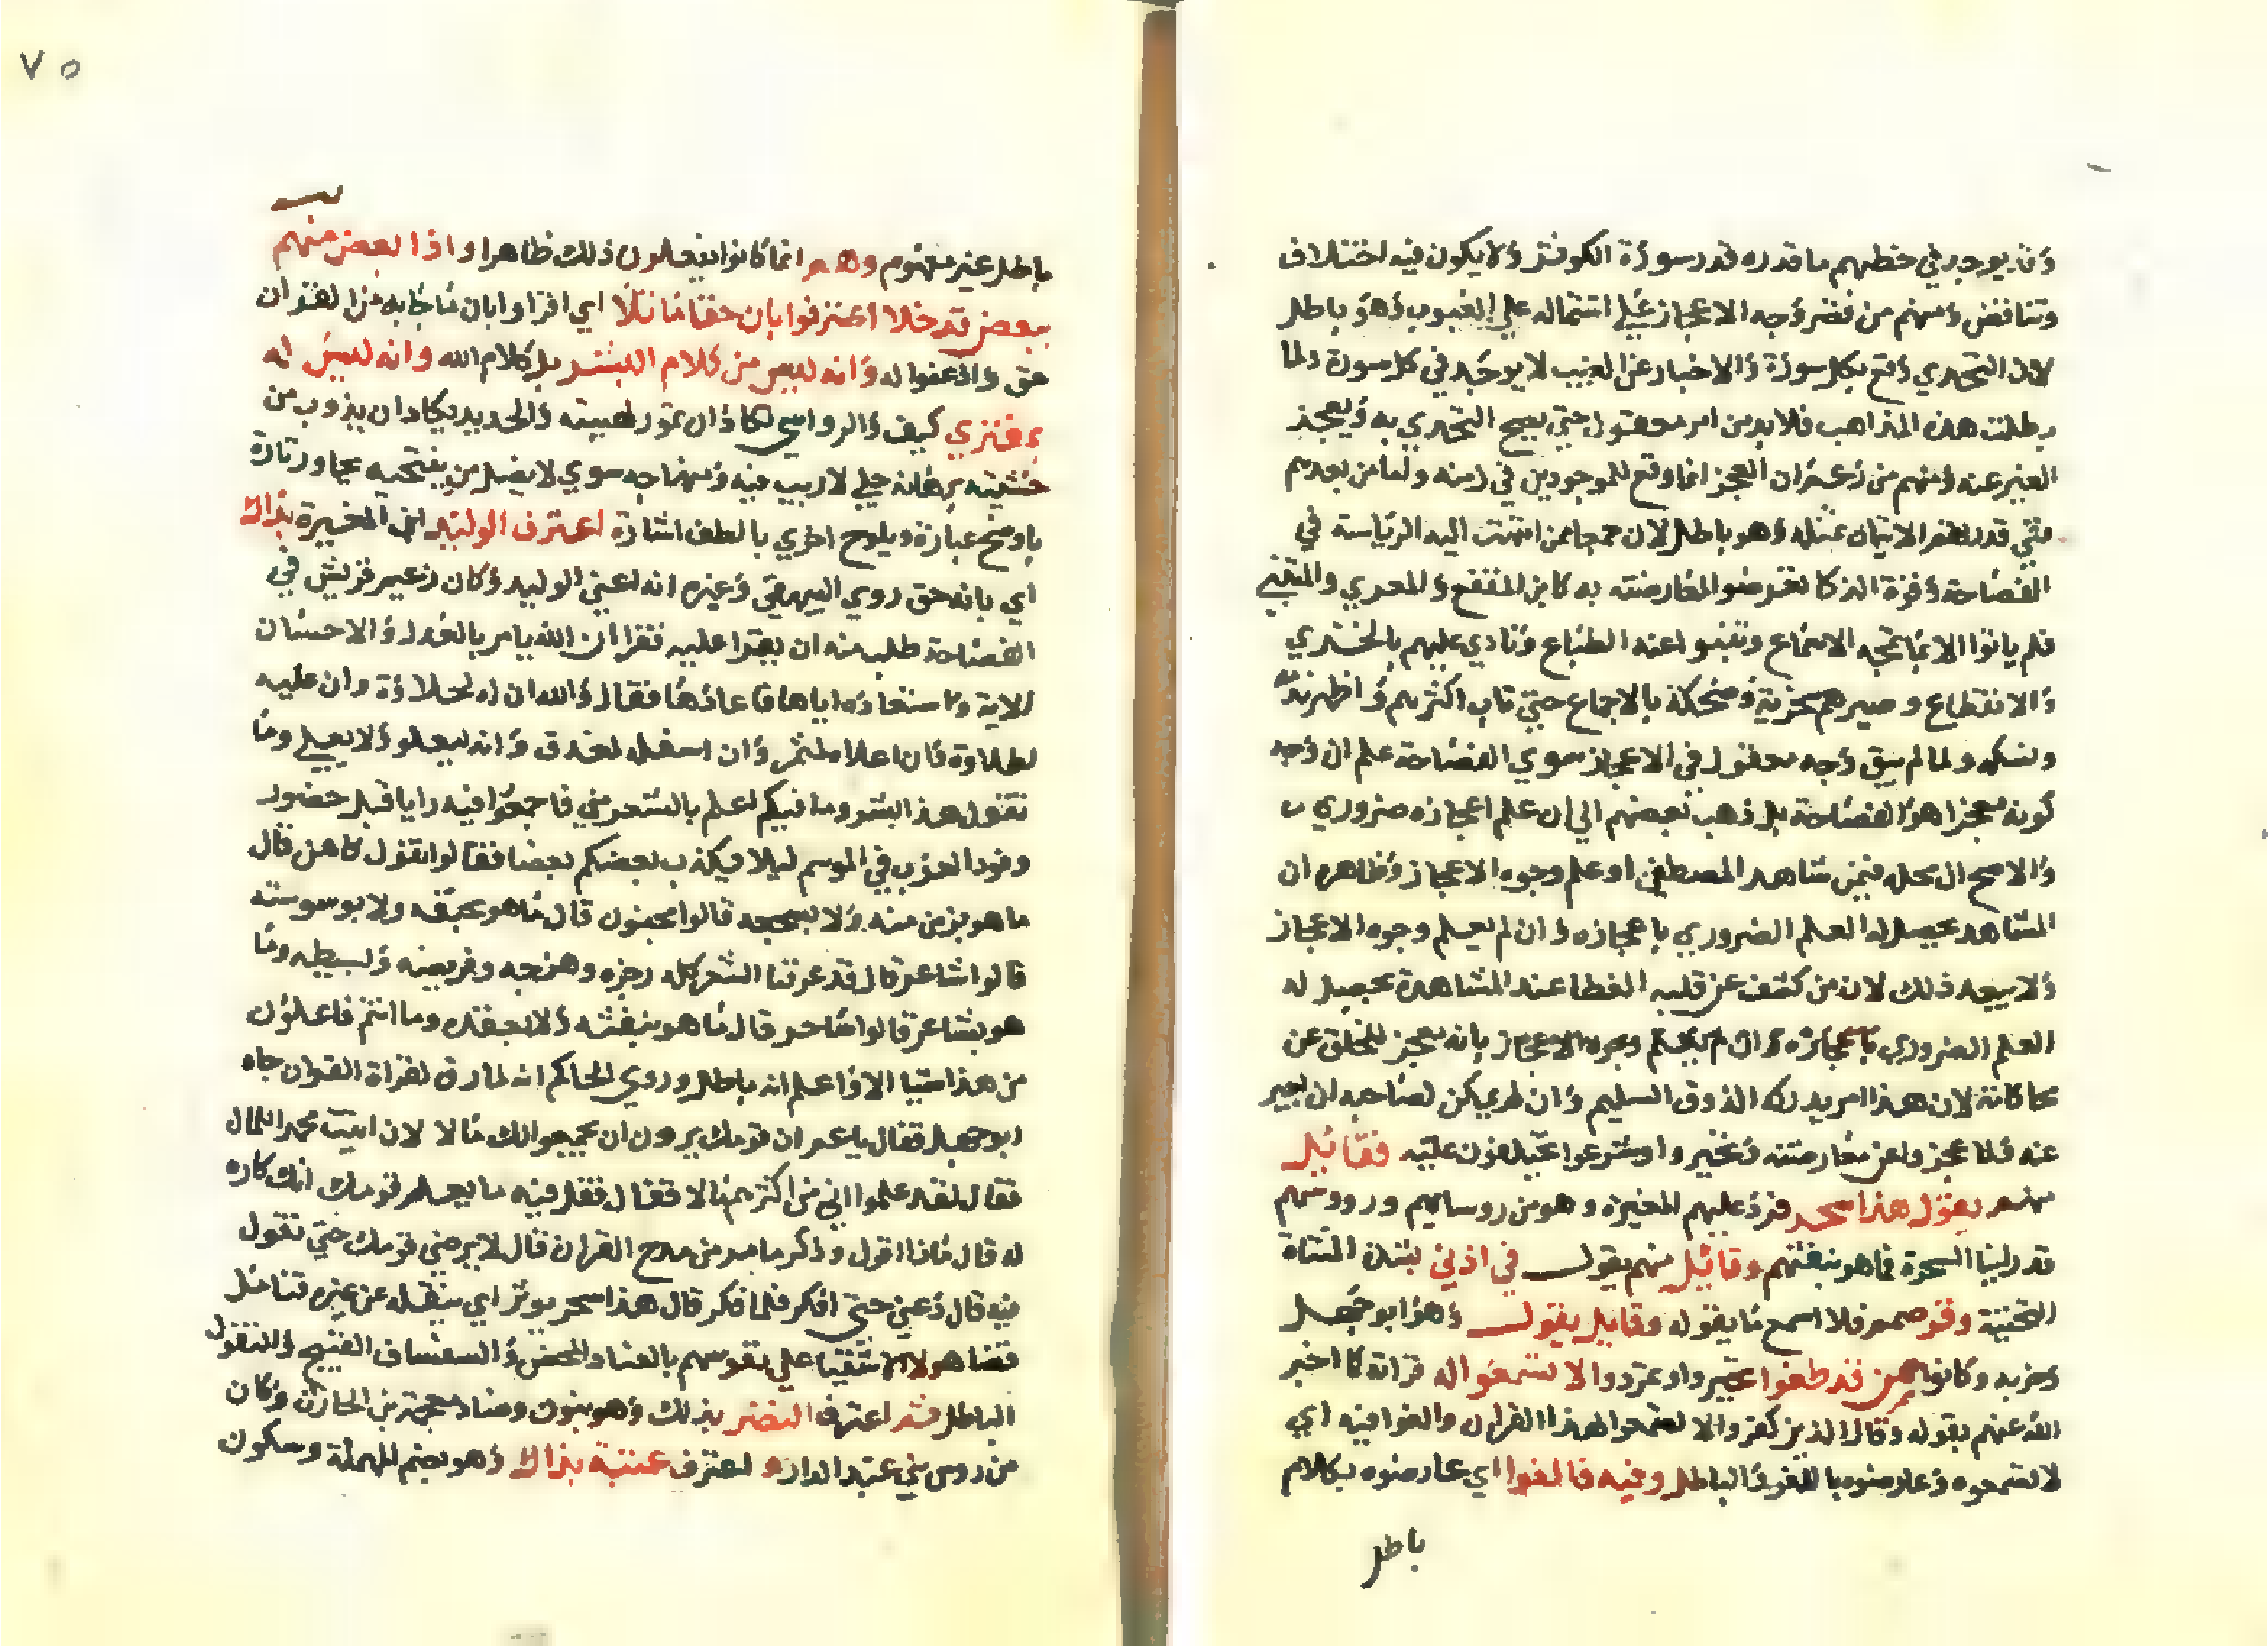 وقد يوجد في خطبهم ما قدره قدر سورة الكوثر ولا يكون فيه اختلاف
وتناقض ومنهم من قصر وجه الاعجاز على اشتماله على الغيوب وهو باطل
لان التحدي وقع بكل سورة والاخبار عن الغيب لا يوجد في كل سورة ولما
بطلت هذه المذاهب فلابد من امر معقول حتى يصح التحدي به ويعجز
الغير عنه ومنهم من زعم ان العجز انما وقع للموجودين في زمنه واما من بعدهم
ففي قدرتهم الاتيان بمثله وهو باطل لان جمعا ممن انتهت اليه الرياسة في
الفصاحة وفرة الذكا تعرضوا لمعارضته به كابن المقفع والمعري والمتنبي
فلم ياتوا الا بما تمجه الاسماع وتنبوا عنه الطباع ونادي عليهم بالخزي
والانقطاع وصيرهم سخرية وضحكة بالاجماع حتى تاب اكثرهم واظهر ندمه
ونسكه ولما لم يبق وجه معقول في الاعجاز سوي الفصاحة علم ان وجه
كونه معجزا هو الفصاحة بل ذهب بعضهم الي ان علم اعجازه ضروري
والاصح ان محله فيمن شاهد المصطفى او علم وجوه الاعجاز وظاهره ان
المشاهد يحصل له العلم الضروري باعجازه وان لم يعلم وجوه الاعجاز
ولا يبعد ذلك لان من كشف عن قلبه الغطا عند المشاهدة يحصل له
العلم الضروري باعجازه وان لم يعلم وجوه الاعجاز بانه معجز للخلق عن
محاكاته لان هذا امر يدركه الذوق السليم وان لم يكن لصاحبه ان يعبر
عنه فلما عجزوا عن معارضته وتحيروا وشرعوا يختلفون عليه فقائل
منهم يقول هذا سحر فرد عليهم المغيرة وهو من روسايهم ورووسهم
قد راينا السحرة فما هو بنفثهم وقائل منهم يقول في اذني بشدة المثناة
التحتية وقر صمم فلا اسمع ما يقوله وقايل يقول وهو ابو جهل
وحزبه وكانوا ممن قد طغوا تجبروا وتمردوا لا تسمعوا له قراته كما اخبر
الله عنهم بقوله وقال الذين كفروا لا تسمعوا لهذا القران والغوا فيه اي
لا تسمعوه وعارضوه باللغو والباطل وفيه فالغوا اي عارضوه بكلام
باطل
٧٥
باطل غير مفهوم وهم انما كانوا يفعلون ذلك ظاهرا واذا بعض منهم
ببعض قد خلا اعترفوا بان حقا ما تلا اي اقروا بان ما جا به من القران
حق واذعنوا له وانه ليس من كلام البشر بل كلام الله وانه ليس له
بمفتري كيف والرواسي لكادان تمور لهيبته والحديد يكاد ان يذوب من
خشيته برهانه جلي لا ريب فيه ومنهاجه سوي لا يضل من ينتحيه يحاور تارة
باوضح عبارة ويلوح اخري بالطف اشارة اعترف الوليد ابن المغيرة بذاك
اي بانه حق روي البيهقي وغيره انه اعني الوليد وكان زعيم قريش في
الفصاحة طلب منه ان يقرا عليه فقرا ان الله يامر بالعدل والاحسان
الاية واستعاده اياها فاعادها فقال والله ان له لحلاوة وان عليه
لطلاوة وان اعلاه لمثمر وان اسفله لمغدق وانه ليعلو ولا يعلي وما
يقول هذا البشر وما فيكم اعلم بالشعر مني فاجمعوا فيه رايا قبل حضور
وفود العرب في الموسم ليلا يكذب بعضكم بعضا فقالوا نقول كاهن قال
ما هو بزمزمته ولا بسجعه قالوا مجنون قال ما هو بخنقه ولا بوسوسته
قالوا شاعر قال قد عرفنا الشعر كله رجزه وهزجه وقريضه وبسيطه وما
هو بشاعر قالوا ساحر قال ما هو بنفثه ولا بعقده وما انتم فاعلون
من هذا شيا الا وانا اعلم انه باطل وروي الحاكم انه لما رق لقراة القران جاه
ابو جهل فقال يا عم ان قومك يرون ان يجمعوا لك مالا لان اتيت محمدا لتنال
فقال لقد علموا اني من اكثرهم مالا فقال فقل فيه ما يعلم قومك انك كاره
له قال ماذا اقول وذكر ما مر من مدح القران قال لا يرضى قومك حتى تقول
فيه قال دعني حتى افكر فلما فكر قال هذا سحر يوثر اي ينقله عن غيره فتامل
قضا هولا الاشقيا على نفوسهم بالعناد المحض والسفساف القبيح والتقول
الباطل ثم اعترف النضر بذلك وهو بنون وضاد معجمة بن الحارث وكان
من روس بني عبد الدار واعترف عتبة بذاك وهو بضم المهملة وسكون